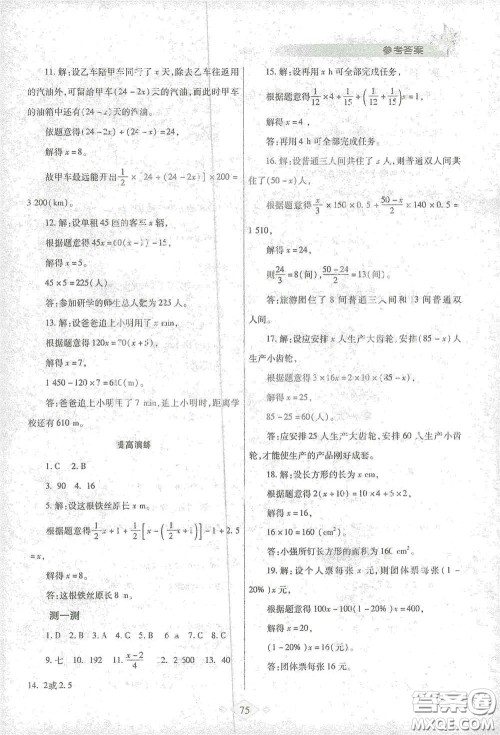 参考答案
11. 解：设乙车陪甲车同行了 x 天，除去乙车往返用
的汽油外，可留给甲车(24－2x)天的汽油，而此时甲车
的油箱中还有(24－x)天的汽油。
依题意得(24－2x)＋(24－x)＝24，
解得 x＝8。
故甲车最远能开出 1/2 × [24＋(24－2x)] × 200＝
3 200(km)。
12. 解：设单租 45 座的客车 x 辆，
根据题意得 45x＝60(x－1)－15，
解得 x＝5。
45×5＝225(人)。
答：参加研学的师生总人数为 225 人。
13. 解：设爸爸追上小明用了 x m
根据题意得 120x＝70(x＋5)，
解得 x＝7，
1 450－120×7＝610(m)。
答：爸爸追上小明用了 7 min，追上小明时，距离学
校还有 610 m。
提高演练
1. C 2. B
3. 90 4. 16
5. 解：设这根铁丝原长 x m。
根据题意得 1/2 x＋1＋1/2 [x－(1/2 x＋1)]－1＋2. 5
＝x，
解得 x＝8。
答：这根铁丝原长 8 m。
测一测
1. D 2. B 3. A 4. B 5. B 6. A 7. D 8. B
9. 七 10. 192 11. x－2/4 12. 2 500 13. 4
14. 2或 2. 5
15. 解：设再用 x h 可全部完成任务。
根据题意得 1/12 × 4＋1/15 ＋(1/12＋1/15)x＝1，
解得 x＝4。
答：再用 4 h 可全部完成任务。
16. 解：设普通三人间共住了 x 人，则普通双人间共
住了(50－x)人。
根据题意得 x/3 × 150 × 0. 5＋50－x/2 × 140 × 0. 5＝
1 510，
解得 x＝24，
则 24/3＝8(间)，50－24/2＝13(间)。
答：旅游团住了 8 间普通三人间和 13 间普通双
人间。
17. 解：设应安排 x 人生产大齿轮，(85－x)人
生产小齿轮，
根据题意得 3×16x＝2×10(85－x)，
解得 x＝25，
85－25＝60(人)。
答：应安排 25 人生产大齿轮，安排 60 人生产小齿
轮，才能使生产的产品刚好成套。
18. 解：设长方形的长为 x cm，
根据题意得 2(x＋10)＝10×4＋6×2，
解得 x＝16，
16×10＝160(cm²)
答：小强所钉长方形的面积为 160 cm²。
19. 解：设个人票每张 x 元，则团体票每张(1－
20%)x 元，
根据题意得 100x－100(1－20%)x＝400，
解得 x＝20，
(1－20%)x＝16，
答：团体票每张 16 元。
75
答案圈
MXQE.COM